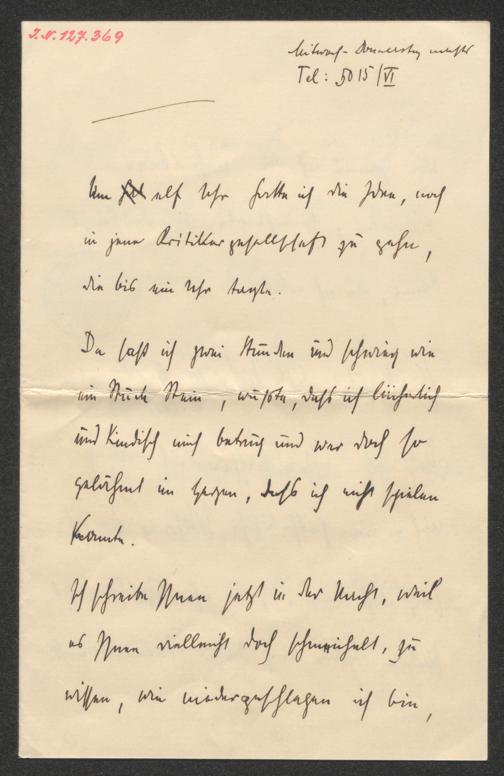 J.N. 127.369
Mittwoch - Donnerstag nachts
Tel: 5015/VI
Um elf Uhr hatte ich die Idee, noch
in jene Kritikergesellschaft zu gehn,
die bis ein Uhr tagte.
Da saß ich zwei Stunden und schwieg wie
ein Stück Stein, wußte, daß ich lächerlich
und kindisch mich betrug und war doch so
gelähmt im Herzen, daß ich nicht spielen
konnte.
Ich schreibe Ihnen jetzt in der Nacht, weil
es Ihnen vielleicht doch schmeichelt, zu
wissen, wie niedergeschlagen ich bin,